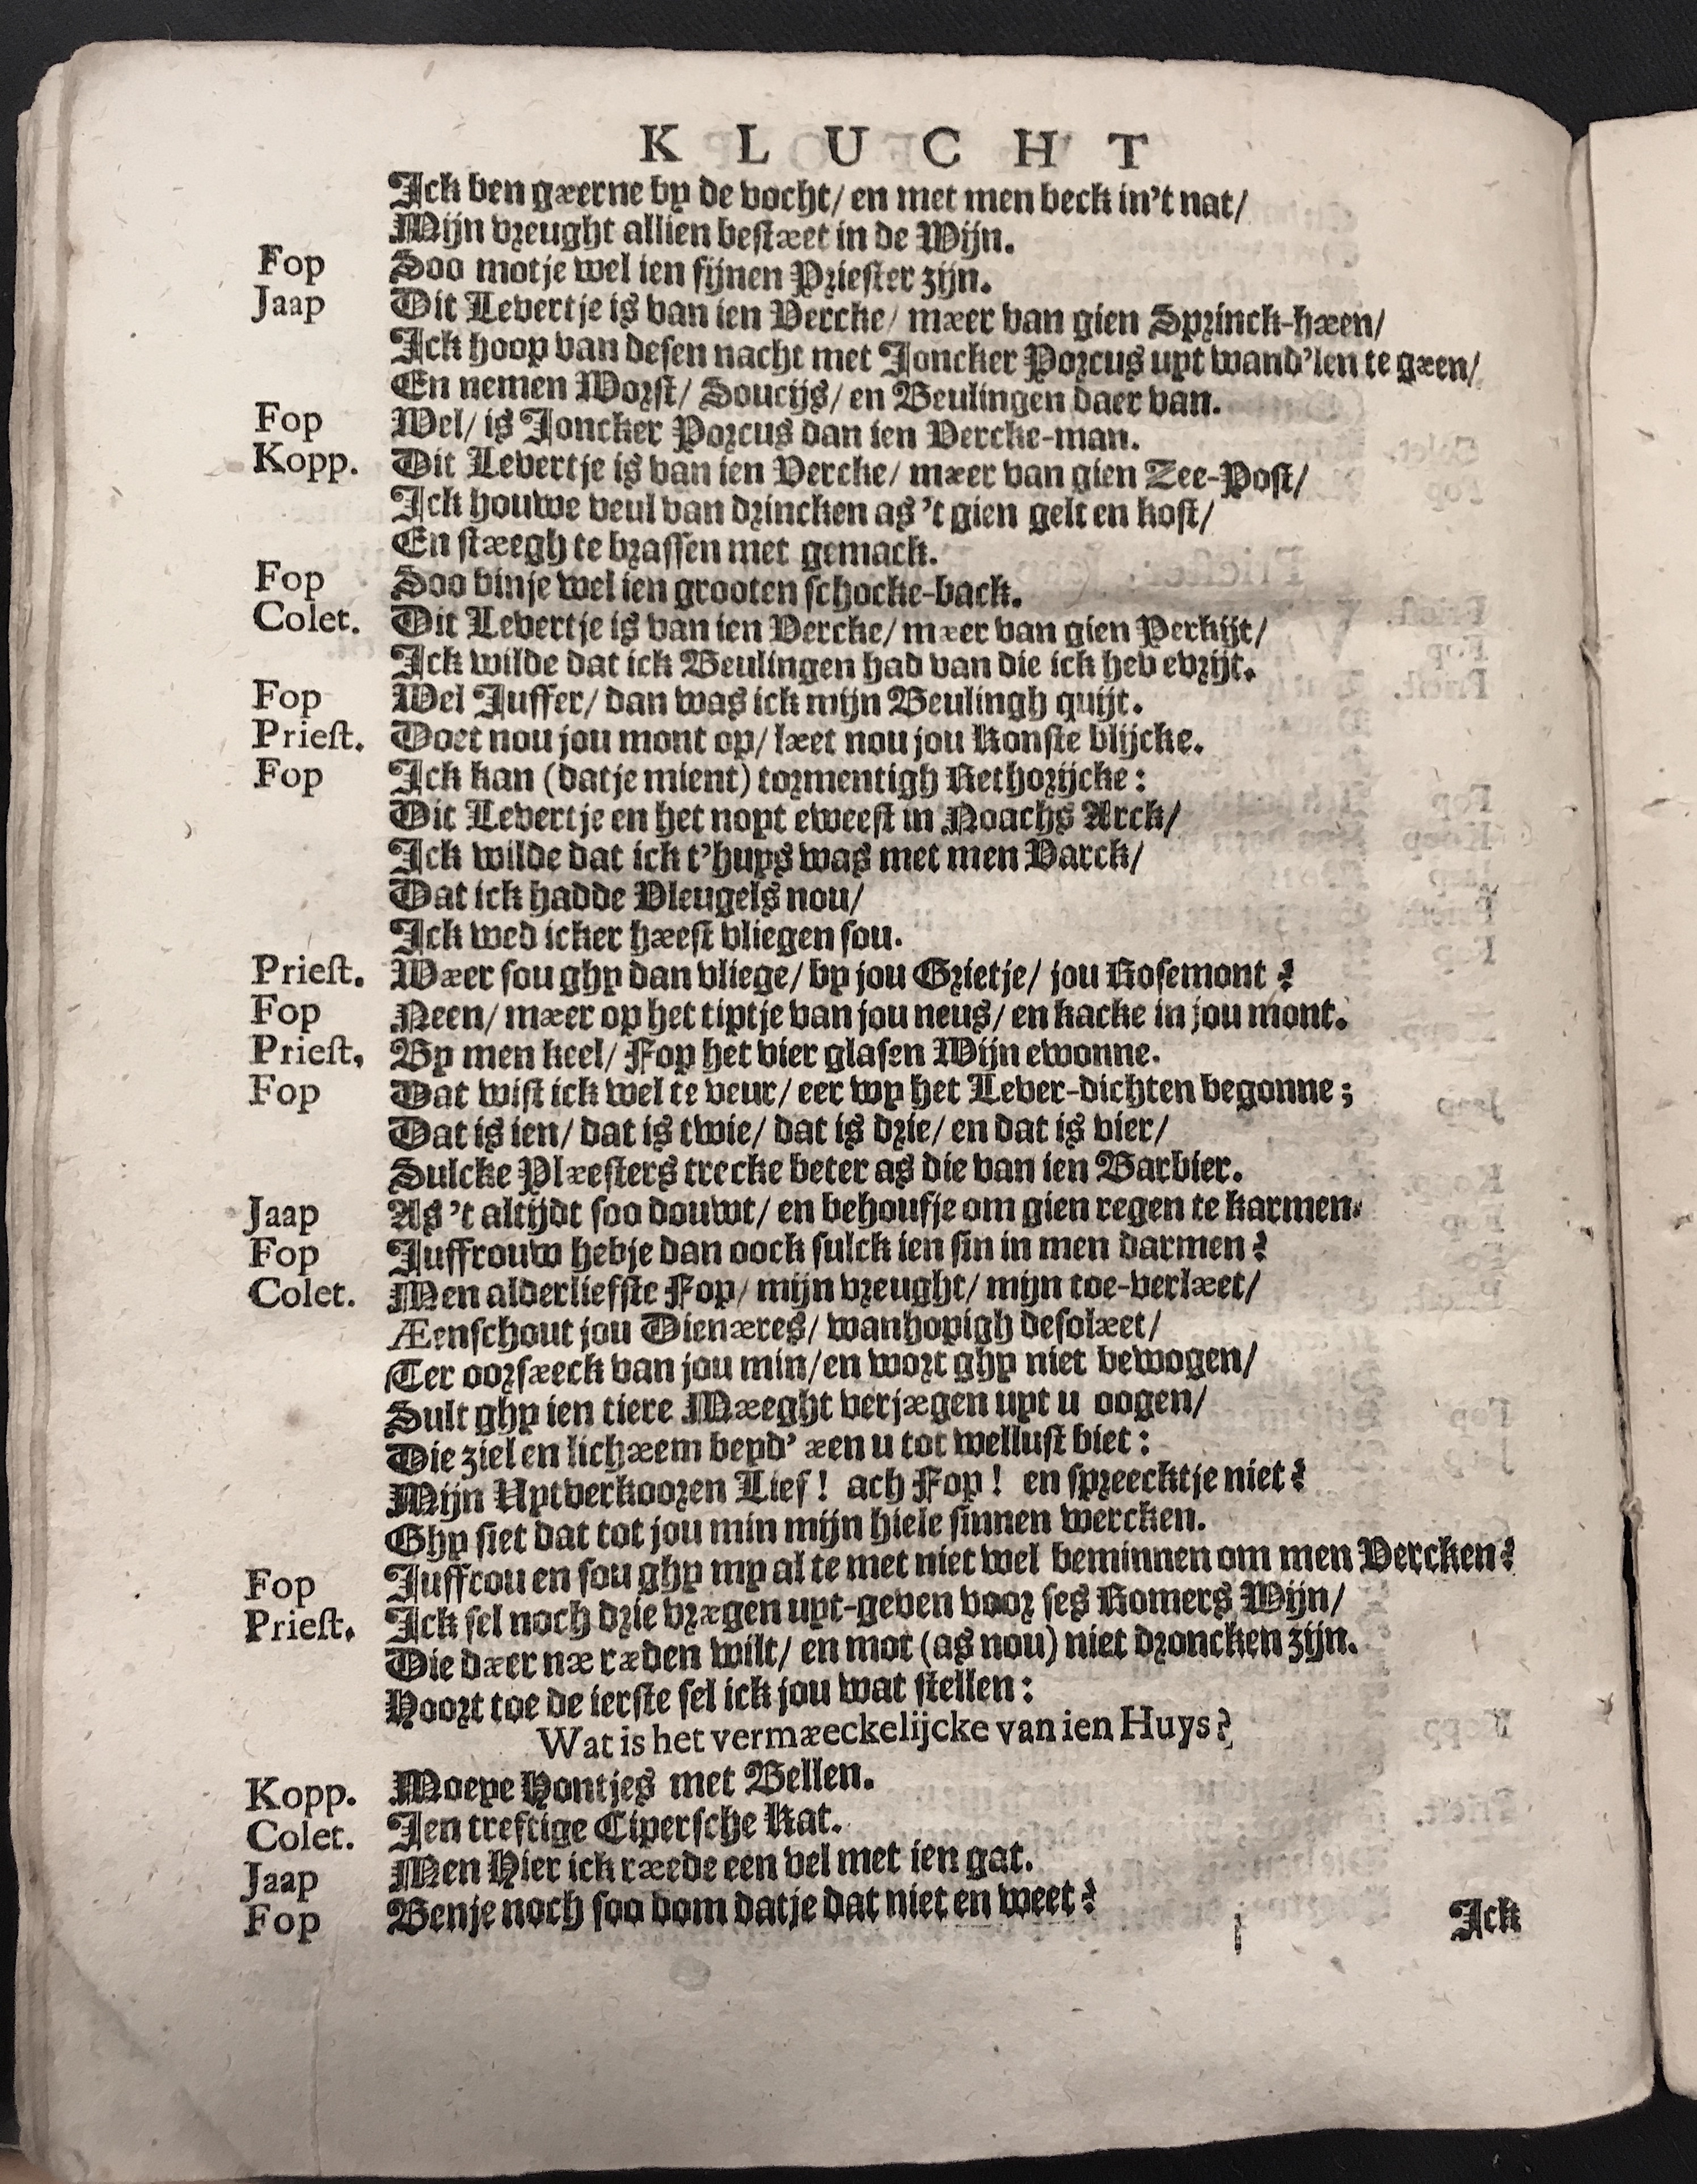 KLUCHT
Ick ben gæerne by de vocht/ en met men beck in't nat/
Mijn vreught allien bestæet in de Wijn.
Fop Soo motje wel ien fijnen Priester zijn.
Jaap Dit Levertje is van ien Vercke/ mæer van gien Sprinck-hæen/
Ick hoop van desen nacht met Joncker Porcus uyt wand'len te gæen/
En nemen Worst/ Soucijs/ en Beulingen daer van.
Fop Wel/ is Joncker Porcus dan ien Vercke-man.
Kopp. Dit Levertje is van ien Vercke/ mæer van gien Zee-Post/
Ick houwe veul van drincken as 't gien gelt en kost/
En stæegh te brassen met gemack.
Fop Soo binje wel ien grooten schocke-back.
Colet. Dit Levertje is van ien Vercke/ mæer van gien Perkijt/
Ick wilde dat ick Beulingen had van die ick heb evrijt.
Fop Wel Juffer/ dan was ick mijn Beulingh quijt.
Priest. Doet nou jou mont op/ læet nou jou Konste blijcke.
Fop Ick kan (datje mient) tormentigh Rethorijcke:
Dit Levertje en het noyt eweest in Noachs Arck/
Ick wilde dat ick t'huys was met men Varck/
Dat ick hadde Vleugels nou/
Ick wed icker hæest vliegen sou.
Priest. Wæer sou ghy dan vliege/ by jou Grietje/ jou Rosemont?
Fop Neen/ mæer op het tiptje van jou neus/ en kacke in jou mont.
Priest, By men keel/ Fop het vier glasen Wijn ewonne.
Fop Dat wist ick wel te veur/ eer wy het Lever-dichten begonne;
Dat is ien/ dat is twie/ dat is drie/ en dat is vier/
Sulcke Plæesters trecke beter as die van ien Barbier.
Jaap As 't altijdt soo douwt/ en behoufje om gien regen te karmen.
Fop Juffrouw hebje dan oock sulck ien sin in men darmen?
Colet. Men alderliefste Fop/ mijn vreught/ mijn toe-verlæet/
Æenschout jou Dienæres/ wanhopigh desolæet/
Ter oorsæeck van jou min/ en wort ghy niet bewogen/
Sult ghy ien tiere Mæeght verjægen uyt u oogen/
Die ziel en lichæem beyd' æen u tot wellust biet:
Mijn Uytverkooren Lief! ach Fop! en spreecktje niet?
Ghy siet dat tot jou min mijn hiele sinnen wercken.
Fop Juffrou en sou ghy my al te met niet wel beminnen om men Vercken?
Priest. Ick sel noch drie vrægen uyt-geven voor ses Romers Wijn/
Die dæer næ ræden wilt/ en mot (as nou) niet droncken zijn.
Hoort toe de ierste sel ick jou wat stellen:
Wat is het vermæeckelijcke van ien Huys?
Kopp. Moeye Hontjes met Bellen.
Colet. Ien treftige Cipersche Kat.
Jaap Men Hier ick ræede een vel met ien gat.
Fop Benje noch soo dom datje dat niet en weet?
Ick